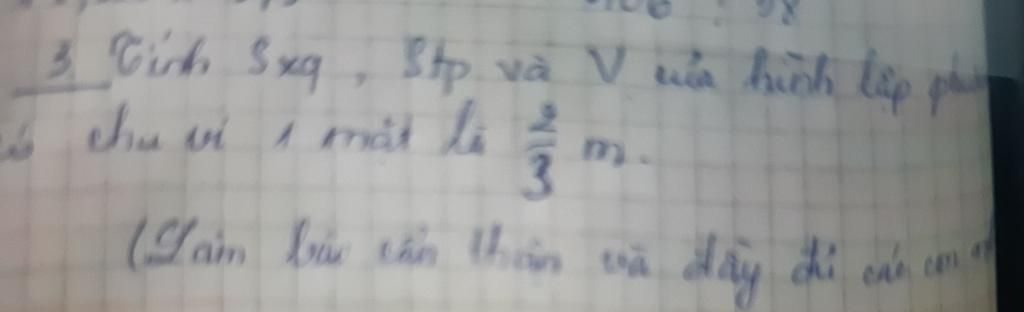 3 Tính Sxq, Stp và V của hình lập
có chu vi 1 mặt là 2/3 m.
(Làm bài cẩn thận và đầy đủ các con